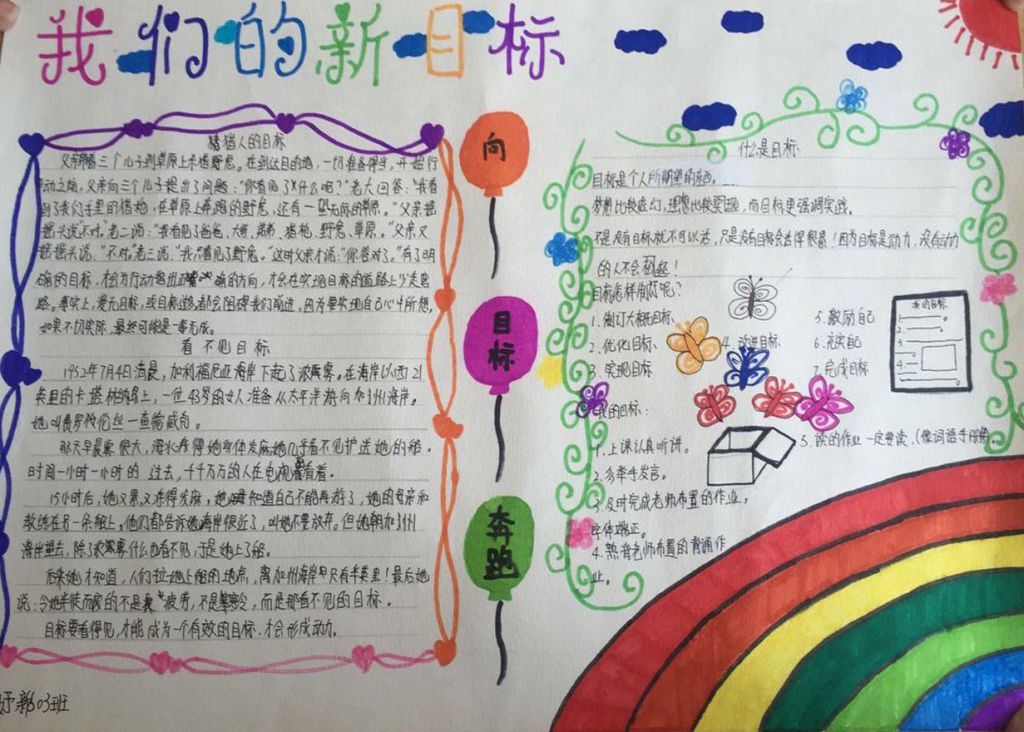 我们的新目标
猎人的目标
父亲带三个儿子到草原上猎野兔。在到达目的地,一切准备得当,开始行
动之前,父亲向三个儿子提出了问题:"你看见了什么呢?"老大回答:"我看
到了我们手里的猎枪,在草原上奔跑的野兔,还有一望无际的草原。"父亲摇
摇头说"不对"老二说:"我看见了爸爸、大哥、弟弟、猎枪、野兔、草原。"父亲又
摇摇头说,"不对"老三说:"我只看见了野兔。"这时父亲才说:"你答对了。"有了明
确的目标,才会为行动指出正确的方向,才会在实现目标的道路上少走弯
路。事实上,漫无目标,或目标过多,都会阻碍我们前进,因为要实现自己心中所想,
如果不切实际,最终可能是一事无成。
看不见目标
1952年7月4日清晨,加利福尼亚海岸下起了浓雾。在海岸以西21
英里的卡塔林纳岛上,一位43岁的女人准备从太平洋游向加州海岸。
她叫费罗伦丝一查德威克。
那天早晨雾很大,海水冻得她身体发麻她几乎看不见护送她的船。
时间一小时一小时的过去,千千万万的人在电视看着。
15小时后,她又累又冻得发麻,她知道自己不能再游了,她的母亲和
教练在另一条船上,他们都告诉她海岸很近了,叫她不要放弃。但她朝加州
海岸望去,除了浓雾什么也看不见,于是她上了船。
后来她才知道,人们拉她上船的地点,离加州海岸只有半英里!最后她
说:令她半途而废的不是疲劳,不是寒冷,而是那看不见的目标。
目标要看得见,才能成为一个有效的目标,才会形成动力。
03班
向
目标
奔跑
什么是目标
目标是个人所期望的东西。
梦想比较虚幻,理想比较更,而目标更强调实践。
不是没有目标就不可以活,只是没有目标会活得很累!因为目标是动力,没有动力
的人不会
目标怎样制订呢?
1. 制订大概目标、
2. 优化目标、
3. 实现目标
4. 改进目标、
5. 激励自己
6. 充实自己
7. 完成目标
我的目标
1.
2.
3.
4.
我的目标:
1. 上课认真听讲。
2. 多举手发言。
3. 及时完成老师布置的作业,
字体端正。
4. 熟背老师布置的背诵作
业。
5. 读的作业一定要读、(像词语手册等